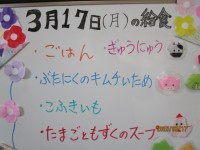 3月17日(月)の給食
・ごはん ・ぎゅうにゅう
・ぶたにくのキムチいため
・こふきいも
・たまごともずくのスープ